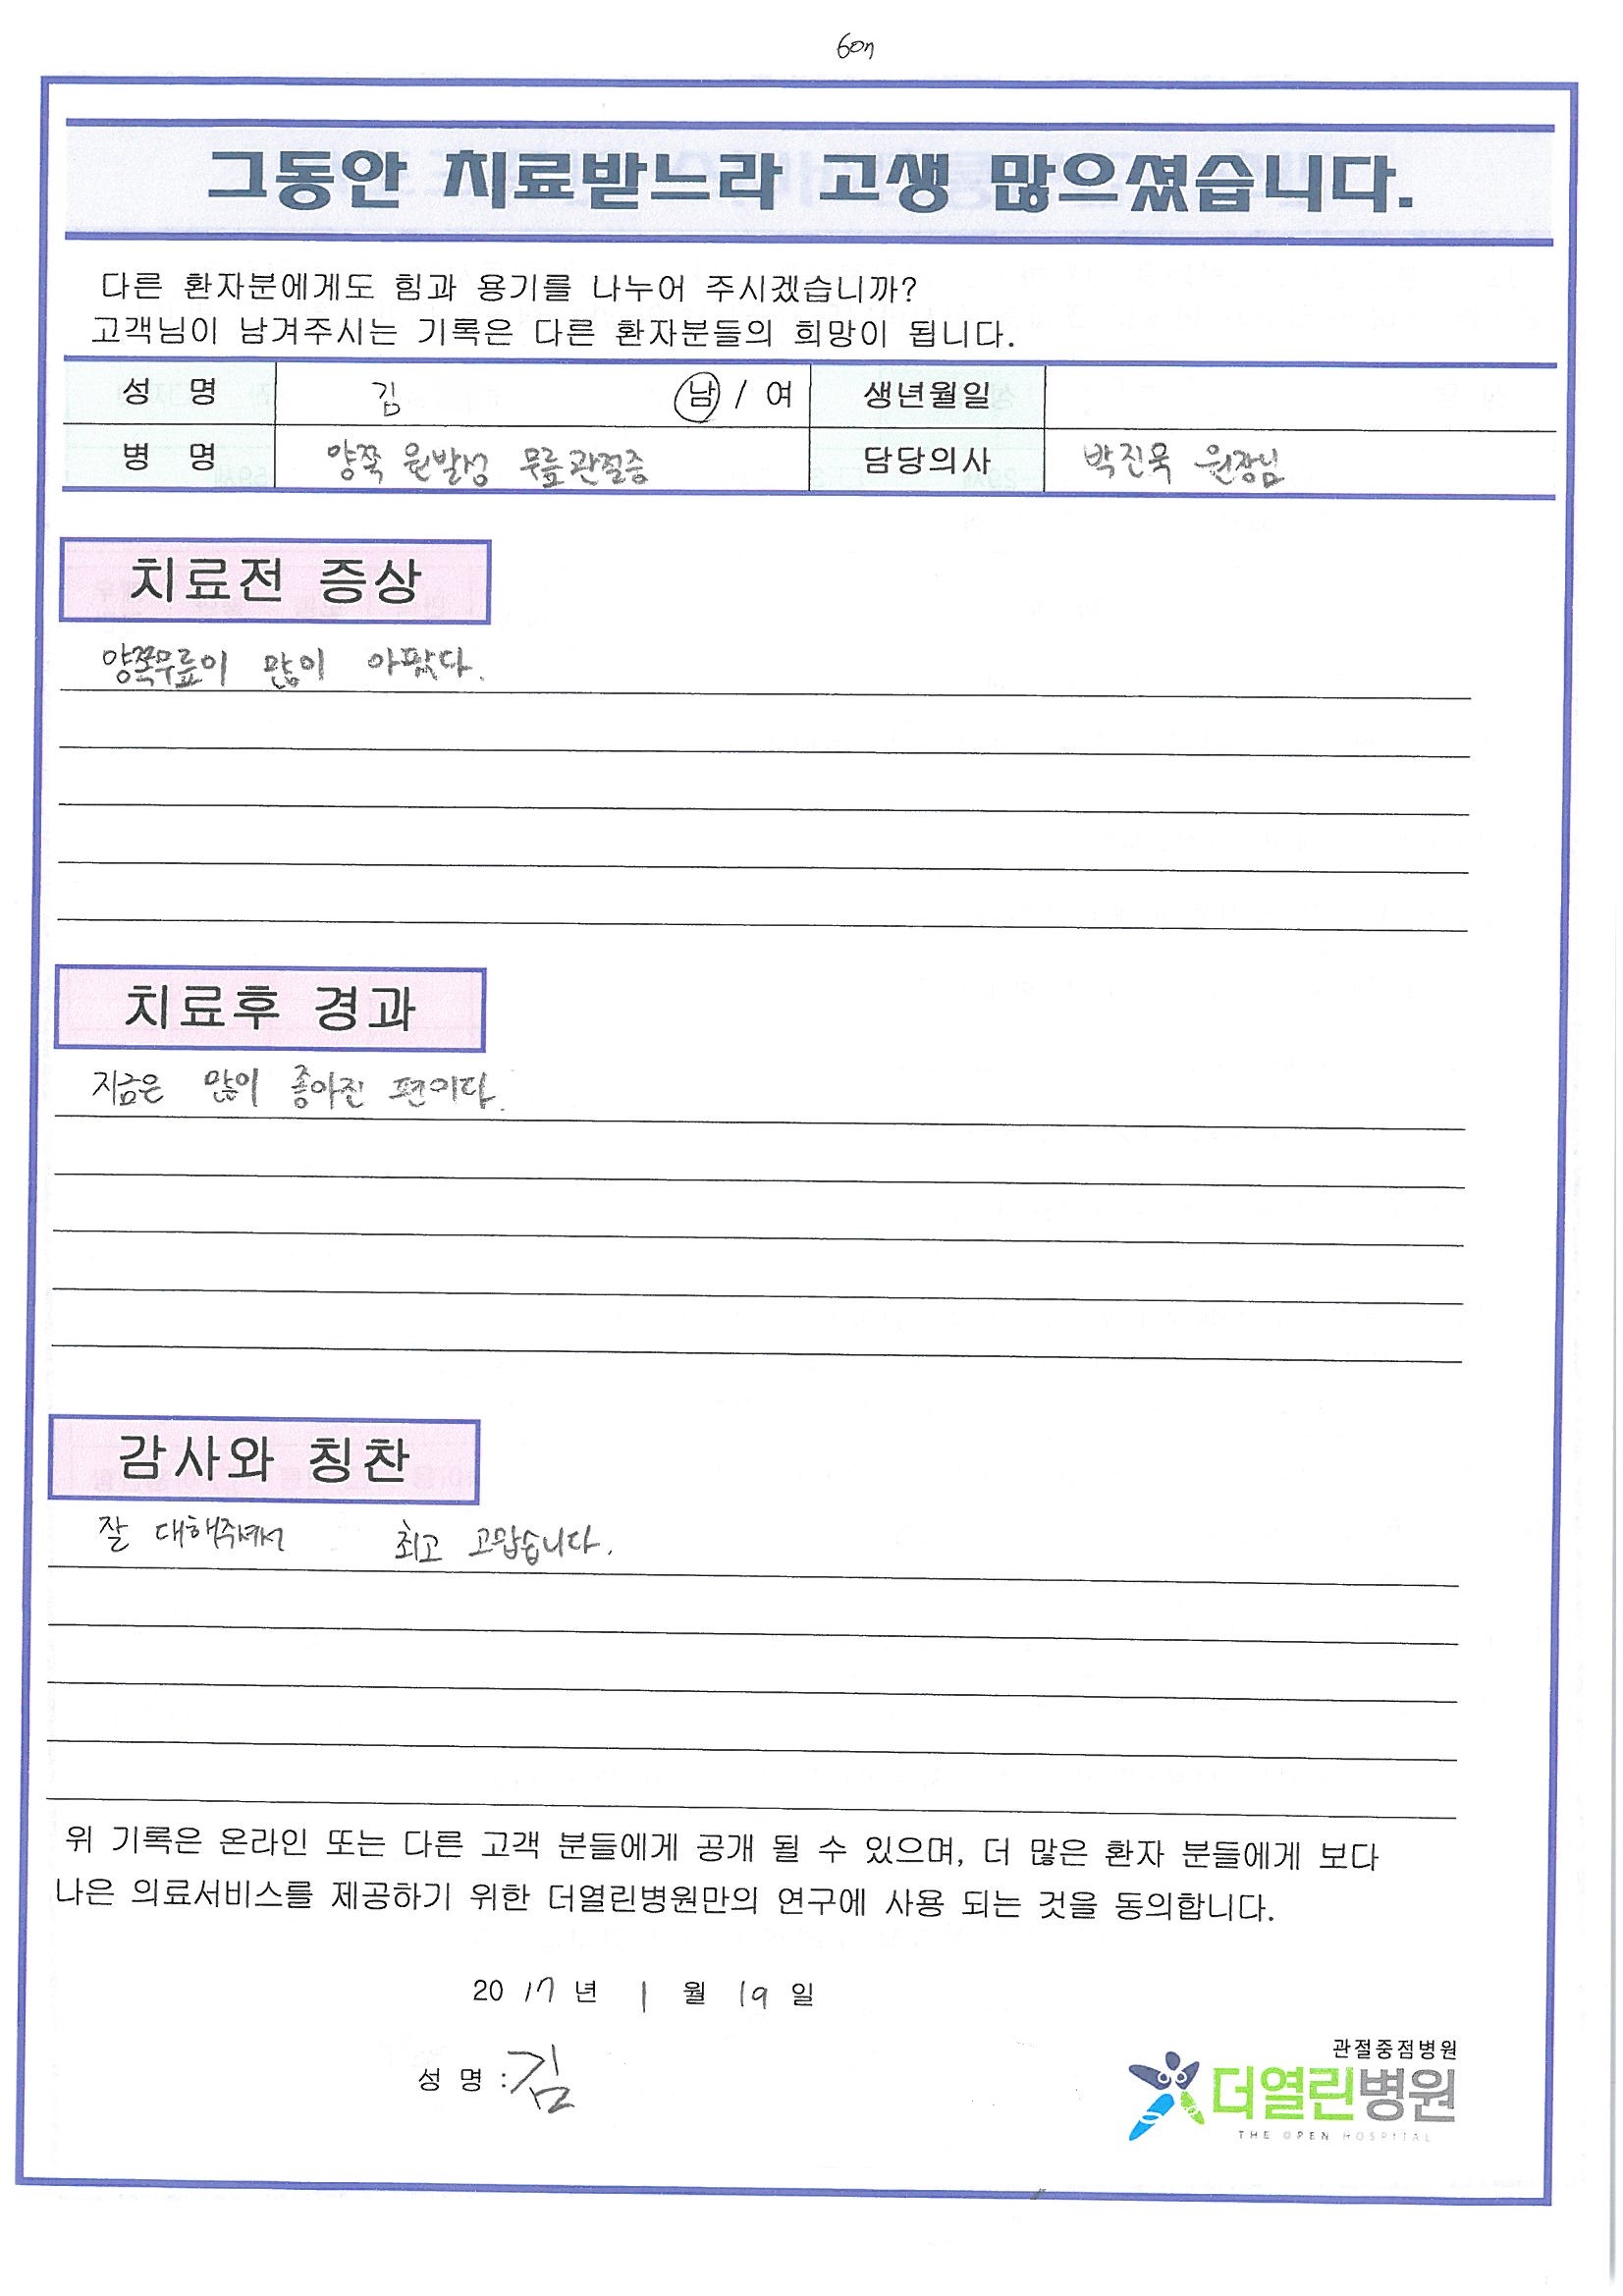 그동안 치료받느라 고생 많으셨습니다.
다른 환자분에게도 힘과 용기를 나누어 주시겠습니까?
고객님이 남겨주시는 기록은 다른 환자분들의 희망이 됩니다.
성 명 김 남 / 여 생년월일
병 명 양쪽 원발성 무릎관절증 담당의사 박진묵 원장님
치료전 증상
양쪽무릎이 많이 아팠다.
치료후 경과
지금은 많이 좋아진 편이다.
감사와 칭찬
잘 대해주셔서 최고 고맙습니다.
위 기록은 온라인 또는 다른 고객 분들에게 공개 될 수 있으며, 더 많은 환자 분들에게 보다
나은 의료서비스를 제공하기 위한 더열린병원만의 연구에 사용 되는 것을 동의합니다.
20 17 년 1 월 19 일
성 명 : 김
관절중점병원
더열린병원
THE OPEN HOSPITAL